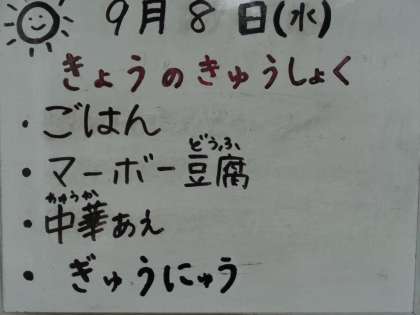 9月8日(水)
きょうのきゅうしょく
・ごはん
どうふ
・マーボー豆腐
ちゅうか
・中華あえ
・ぎゅうにゅう